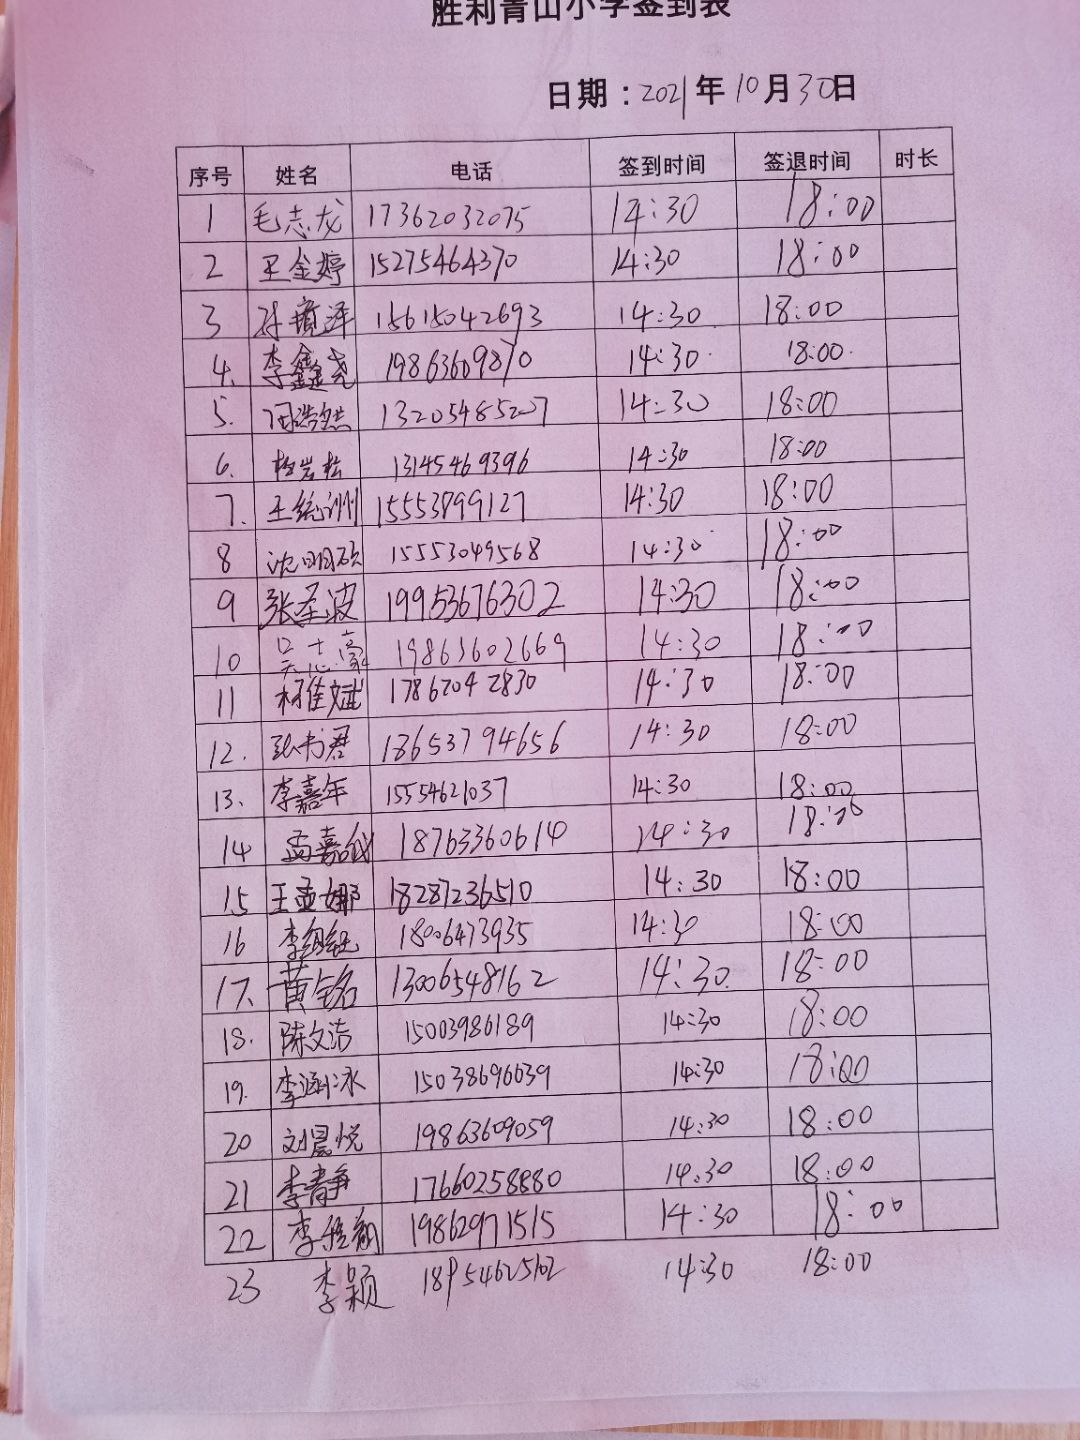 胜利青山小学签到表
日期：2021年10月30日
序号 姓名 电话 签到时间 签退时间 时长
1 毛志龙 17362032075 14:30 18:00
2 王金婷 15275464370 14:30 18:00
3 15615042693 14:30 18:00
4. 李鑫尧 19863609870 14:30 18:00
5. 周浩然 13205485207 14:30 18:00
6. 13145469396 14:30 18:00
7. 王统洲 15553899127 14:30 18:00
8 沈明硕 15553049568 14:30 18:00
9 张圣波 19953676302 14:30 18:00
10 吴志豪 19863602669 14:30 18:00
11 柯佳斌 17862042830 14:30 18:00
12. 张书君 18653794656 14:30 18:00
13. 李嘉年 15554621037 14:30 18:00
14 孟嘉诚 18763360614 14:30 18:00
15 王亚娜 18287236510 14:30 18:00
16 18006473935 14:30 18:00
17. 黄铭 13006548162 14:30 18:00
18. 陈文洁 15003986189 14:30 18:00
19. 李涵冰 15038696039 14:30 18:00
20 刘晨悦 19863609059 14:30 18:00
21 李静 17660258880 14:30 18:00
22 19862971515 14:30 18:00
23 李颖 18954625102 14:30 18:00